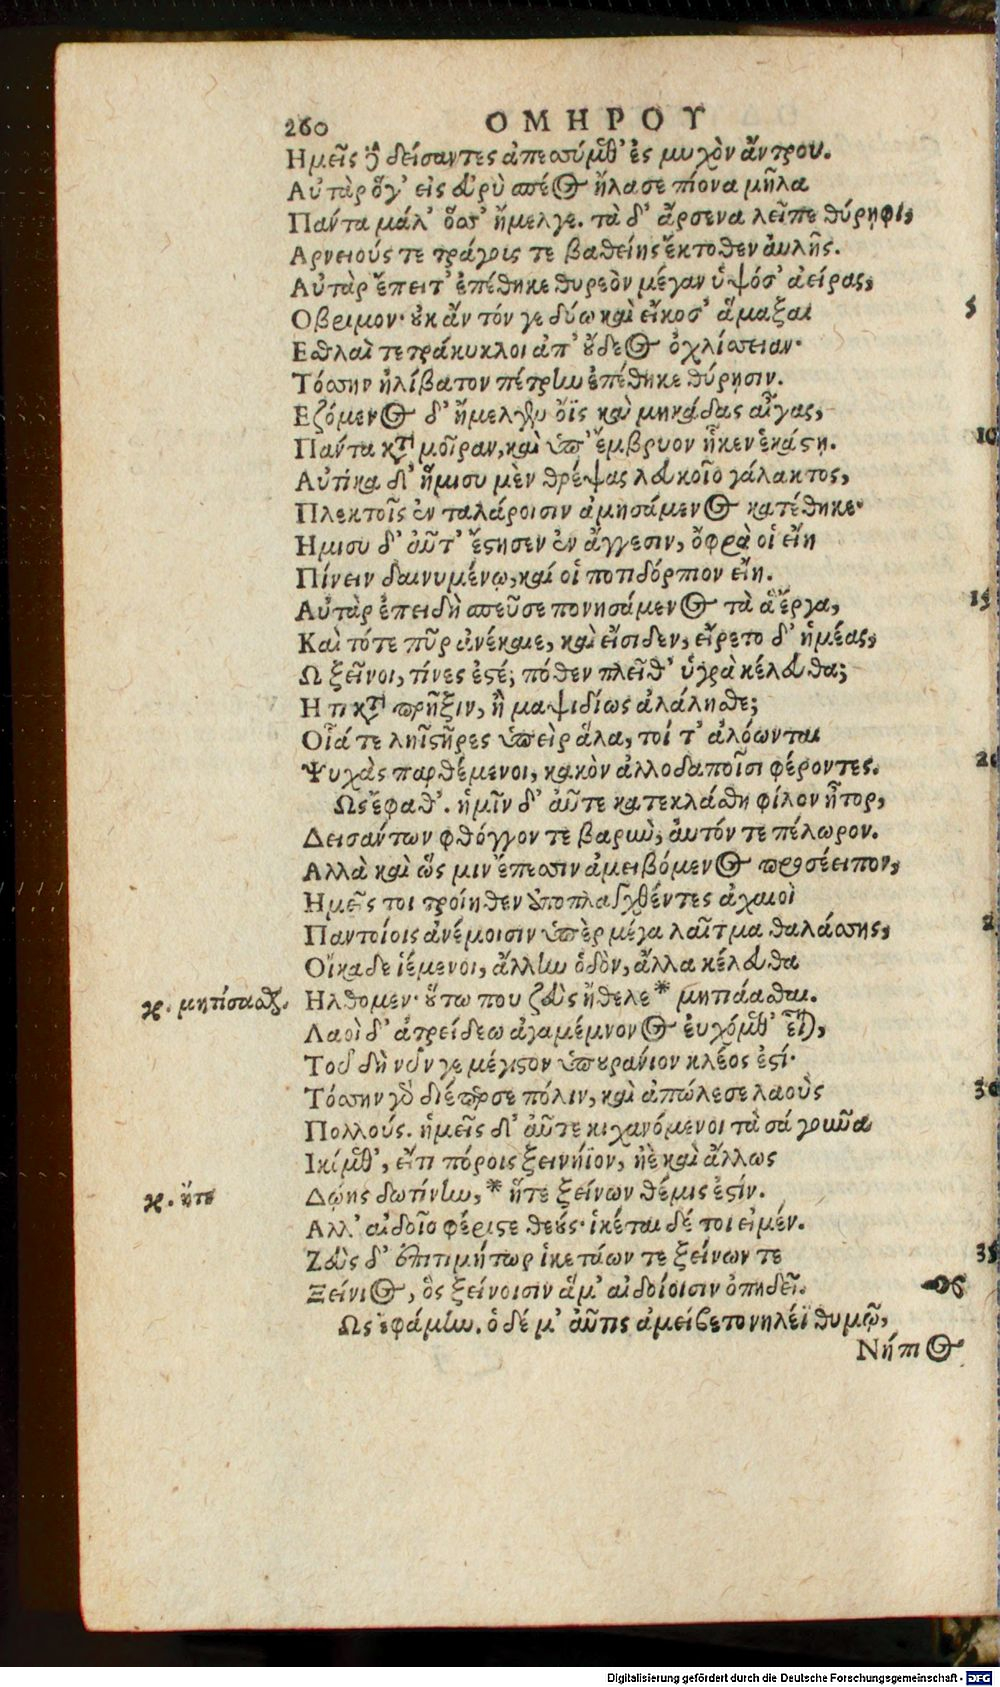 260 ΟΜΗΡΟΥ
Ημεῖς ἢ δείσαντες ἀπεσσύμεθ' ἐς μυχὸν ἄντρου.
Αὐτὰρ ὅγ' εἰς εὐρὺ σπέος ἤλασε πίονα μῆλα
Πάντα μάλ' ὅσσ' ἤμελγε. τὰ δ' ἄρσενα λεῖπε θύρηφι,
Αρνειούς τε τράγοις τε βαθείης ἔκτοθεν αὐλῆς.
Αὐτὰρ ἔπειτ' ἐπέθηκε θυρεὸν μέγαν ὑψόσ' ἀείρας, 5
Οβριμον· οὐκ ἄν τόν γε δύω καὶ εἴκοσ' ἅμαξαι
Εσθλαὶ τετράκυκλοι ἀπ' οὔδεος ὀχλίσσειαν·
Τόσσην ἠλίβατον πέτρην ἐπέθηκε θύρησιν.
Εζόμενος δ' ἤμελγεν ὄϊς καὶ μηκάδας αἶγας,
Πάντα κατὰ μοῖραν, καὶ ὑπ' ἔμβρυον ἧκεν ἑκάστῃ. 10
Αὐτίκα δ' ἥμισυ μὲν θρέψας λευκοῖο γάλακτος,
Πλεκτοῖς ἐν ταλάροισιν ἀμησάμενος κατέθηκε·
Ημισυ δ' αὖτ' ἔστησεν ἐν ἄγγεσιν, ὄφρα οἱ εἴη
Πίνειν δαινυμένῳ, καί οἱ ποτιδόρπιον εἴη.
Αὐτὰρ ἐπειδὴ σπεῦσε πονησάμενος τὰ ἃ ἔργα, 15
Καὶ τότε πῦρ ἀνέκαιε, καὶ εἴσιδεν, εἴρετο δ' ἡμέας,
Ω ξεῖνοι, τίνες ἐστέ; πόθεν πλεῖθ' ὑγρὰ κέλευθα;
Η τι κατὰ πρῆξιν, ἢ μαψιδίως ἀλάλησθε;
Οἷά τε ληϊστῆρες ὑπεὶρ ἅλα, τοί τ' ἀλόωνται
Ψυχὰς παρθέμενοι, κακὸν ἀλλοδαποῖσι φέροντες. 20
Ως ἔφαθ'. ἡμῖν δ' αὖτε κατεκλάσθη φίλον ἦτορ,
Δεισάντων φθόγγον τε βαρὺν, αὐτόν τε πέλωρον.
Αλλὰ καὶ ὥς μιν ἔπεσσιν ἀμειβόμενος προσέειπον,
Ημεῖς τοι τροίηθεν ἀποπλαγχθέντες ἀχαιοὶ
Παντοίοις ἀνέμοισιν ὑπὲρ μέγα λαῖτμα θαλάσσης, 2
Οἴκαδε ἱέμενοι, ἄλλην ὁδὸν, ἄλλα κέλευθα
γρ. μητίσασθαι. Ηλθομεν· οὕτω που ζεὺς ἤθελε * μητιάασθαι.
Λαοὶ δ' ἀτρείδεω ἀγαμέμνονος εὐχόμεθ' εἶναι,
Τοῦ δὴ νῦν γε μέγιστον ὑπουράνιον κλέος ἐστί·
Τόσσην γὰρ διέπερσε πόλιν, καὶ ἀπώλεσε λαοὺς 30
Πολλούς. ἡμεῖς δ' αὖτε κιχανόμενοι τὰ σὰ γοῦνα
Ικόμεθ', εἴ τι πόροις ξεινήϊον, ἠὲ καὶ ἄλλως
γρ. ἥτε Δῴης δωτίνην, * ἥτε ξείνων θέμις ἐστίν.
Αλλ' αἰδοῖο φέριστε θεούς· ἱκέται δέ τοι εἰμέν.
Ζεὺς δ' ἐπιτιμήτωρ ἱκετάων τε ξείνων τε 35
Ξείνιος, ὃς ξείνοισιν ἅμ' αἰδοίοισιν ὀπηδεῖ.
Ως ἐφάμην. ὁ δέ μ' αὖτις ἀμείβετο νηλέϊ θυμῷ,
Νήπιος
Digitalisierung gefördert durch die Deutsche Forschungsgemeinschaft - DFG